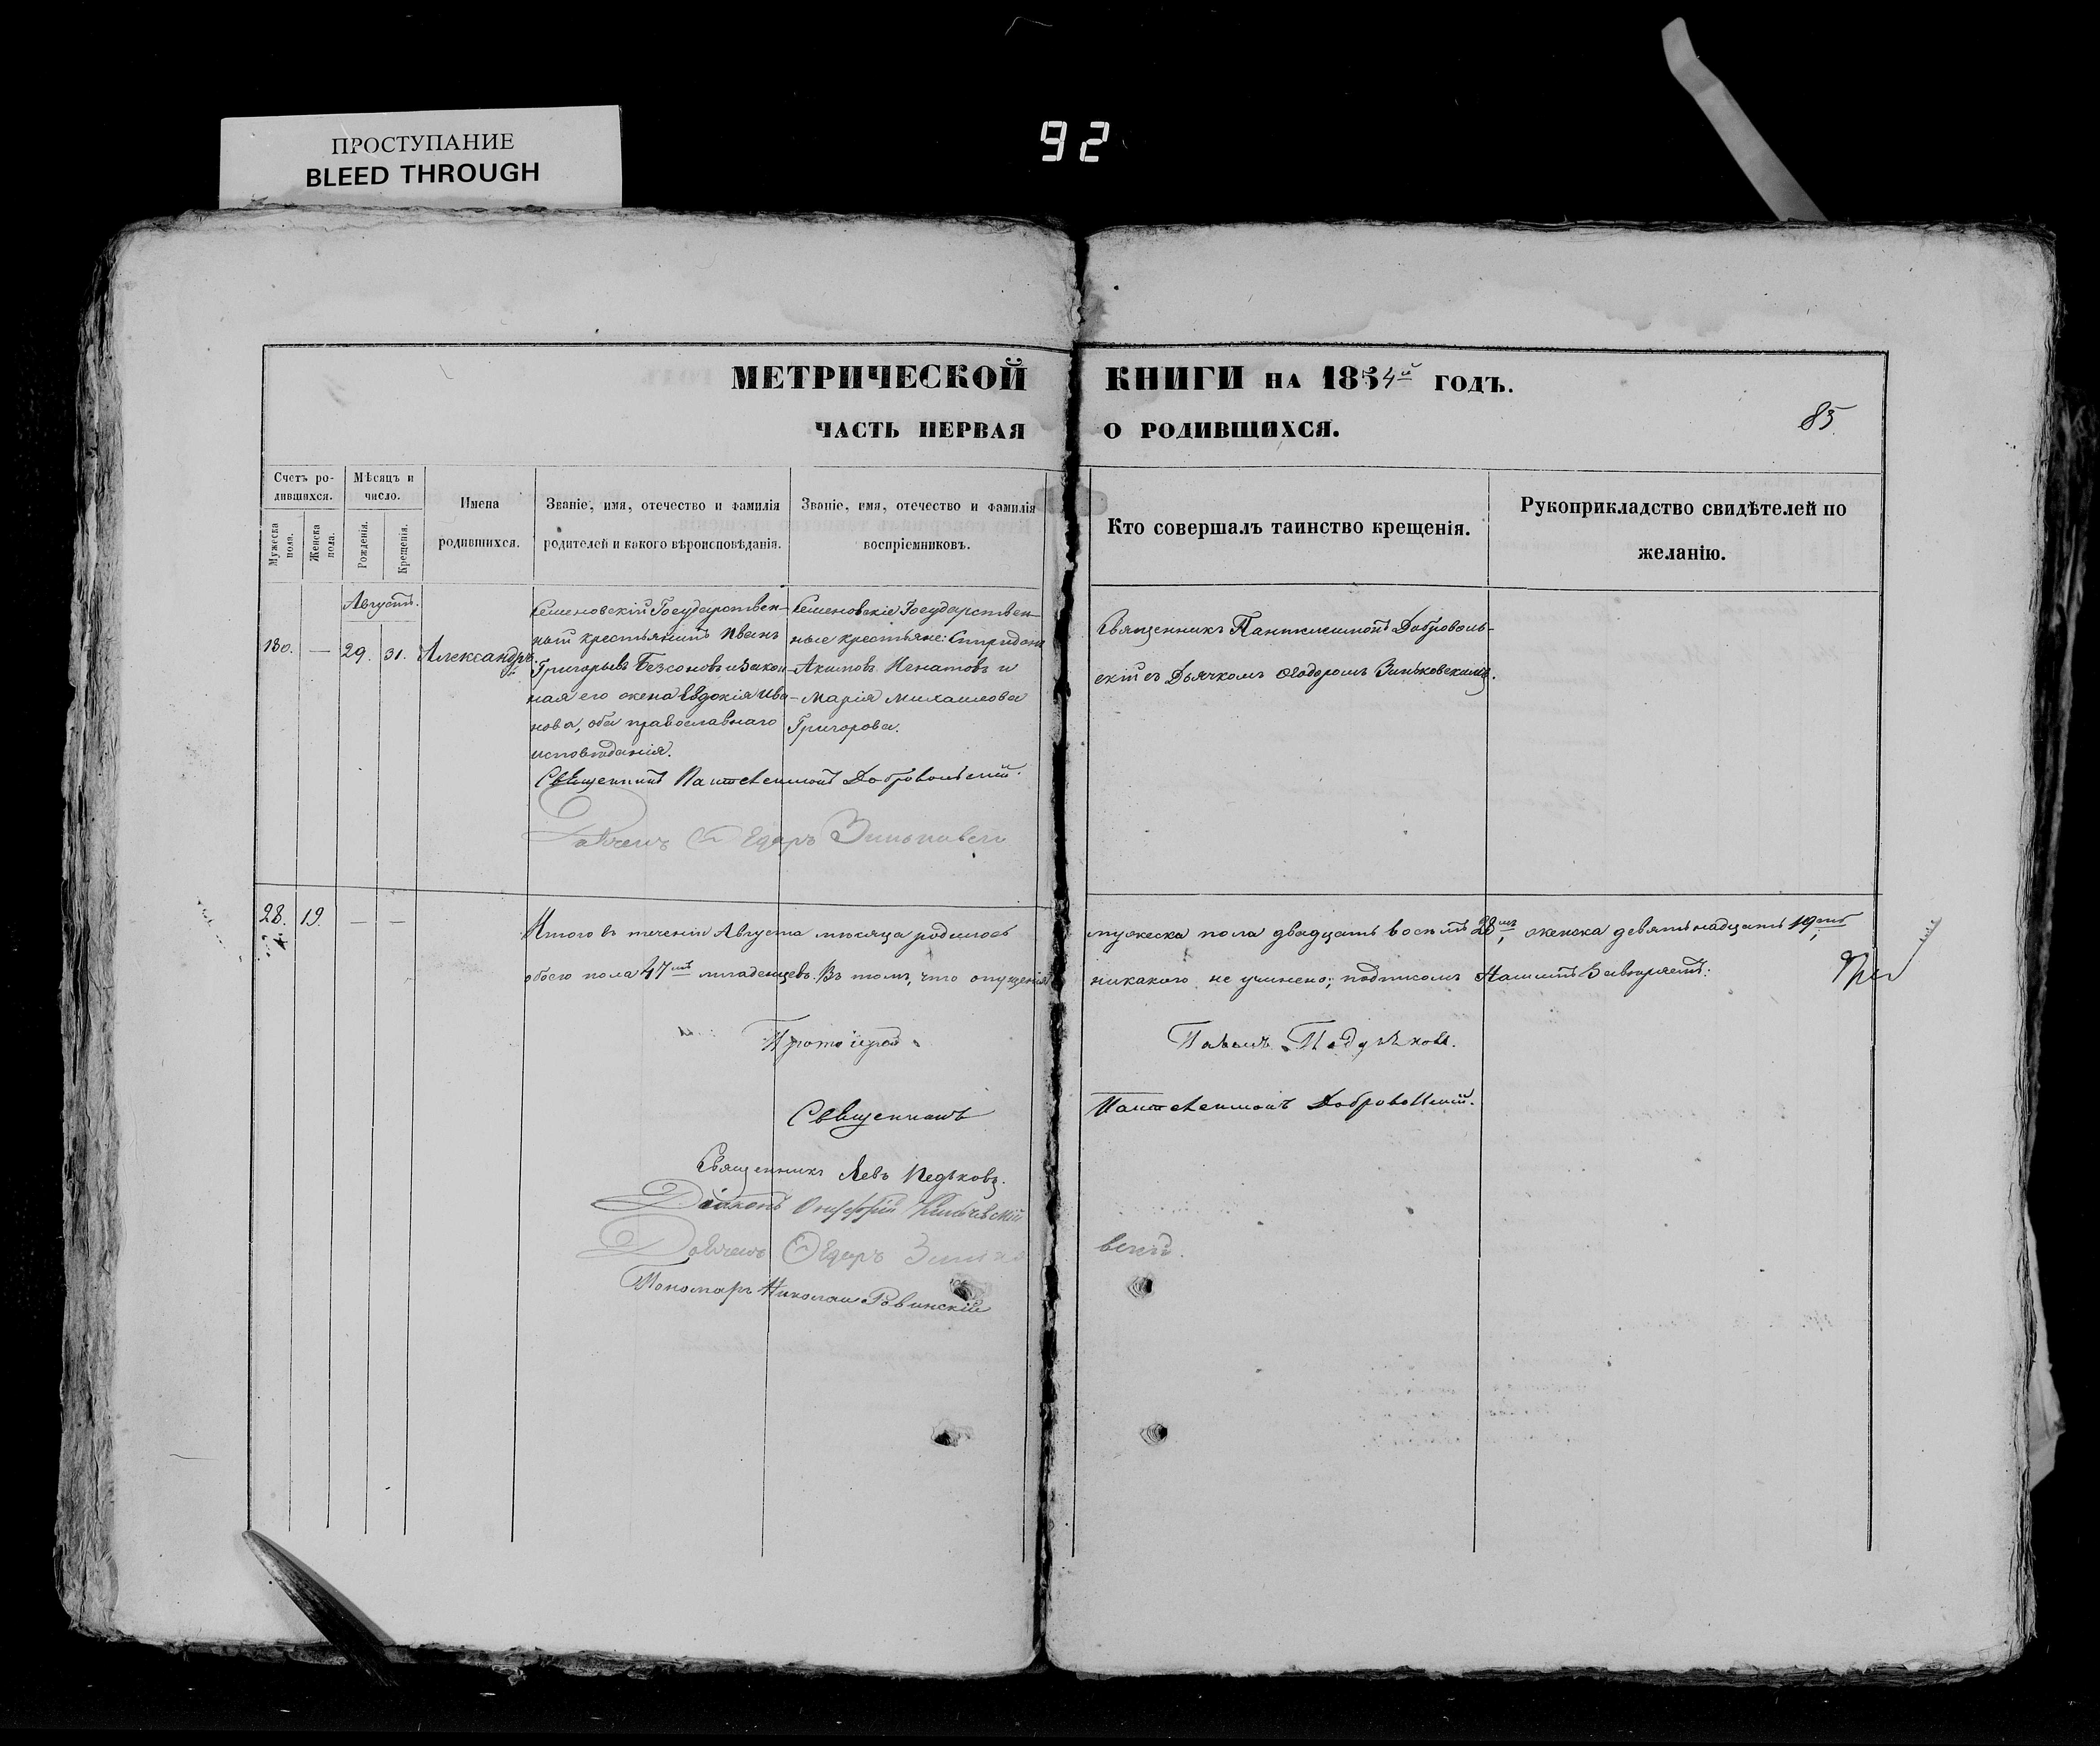 ПРОСТУПАНИЕ
BLEED THROUGH
92
МЕТРИЧЕСКОЙ КНИГИ НА 1854й ГОДЪ.
ЧАСТЬ ПЕРВАЯ О РОДИВШИХСЯ.
85
Счетъ ро-
дившихся.
Мужеска пола.
Женска пола.
Мѣсяцъ и
число.
Рожденія.
Крещенія.
Имена
родившихся.
Званіе, имя, отечество и фамилія
родителей и какого вѣроисповѣданія.
Званіе, имя, отечество и фамилія
воспріемниковъ.
Кто совершалъ таинство крещенія.
Рукоприкладство свидѣтелей по
желанію.
Августъ.
130. — 29. 31. Александръ.
Семеновскій Государствен-
ный крестьянинъ Иванъ
Григорьевъ Безсоновъ и закон-
ная его жена Евдокія Ива-
нова, оба православнаго
исповѣданія.
Семеновскіе Государствен-
ные крестьяне: Спиридонъ
Акимовъ Игнатовъ и
Марія Михаилова
Григорова.
Священникъ Пантелеимонъ Доброволь-
скій съ Дьячкомъ Ѳеодоромъ Зиньковскимъ.
Священникъ Пантелеимонъ Добровольскій.
Дьячекъ Ѳедоръ
28. 19. — —
Итого въ теченіи Августа мѣсяца родилось мужеска пола двадцать восемь 28мь, женска девятьнадцать 19ть,
обоего пола 47мь младенцевъ. Въ томъ, что опущенія никакого не учинено; подписомъ нашимъ завѣряемъ:
Протоіерей Павелъ
Священникъ Пантелеимонъ Добровольскій.
Священникъ Левъ
Діаконъ
Дьячекъ Ѳедоръ Зинько вскій.
Пономарь Николай Ровинскій